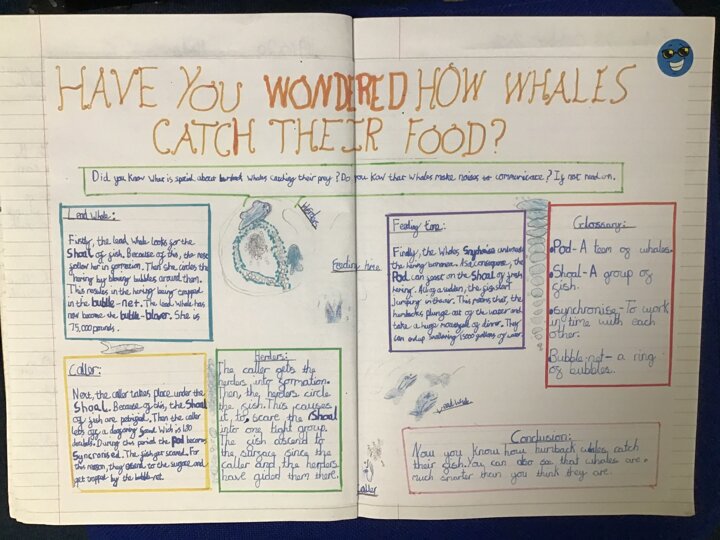 HAVE YOU WONDERED HOW WHALES
CATCH THEIR FOOD?
Did you know what is special about humback whales catching their pray? Do you know that whales make noises to communicate? If not read on.
Lead Whale:
Firstly, the lead whale looks for the
Shoal of fish. Because of this, the rest
follow her in formation. Then she circles the
herring by blowing bubbles around them.
This results in the herrings being trapped
in the bubble-net. The lead whale has
now become the bubble-blower. She is
75,000 pounds.
Caller:
Next, the caller takes place under the
Shoal. Because of this, the Shoal
of fish are petrified. Then the caller
lets off a deafening Sound which is 130
decibels. During this period the Pod becomes
Syncronised. The fish get scared. For
this reason, they ascend to the surface and
get trapped by the bubble-net.
Herders:
The caller gets the
herders into formation.
Then the herders circle
the fish. This causes
it to scare the Shoal
into one tight group.
The fish ascend to
the surface since the
caller and the herders
have gided them there.
Herders
Feeding time
Feeding time:
Finally, the whales Synchonise underneath
the herring bonanza. As a consequence, the
Pod can feast on the Shoal of fish
herring. All of a sudden, the fish start
Jumping in the air. This means that, the
humbacks plunge out of the water and
take a huge mouthful of dinner. They
can end up swallowing 15000 gallons of water.
Glossary:
Pod - A team of whales.
Shoal - A group of
fish.
Synchronise - To work
in time with each
other.
Bubble-net - a ring
of bubbles.
Lead whale
Caller
Conclusion:
Now you know how humback whales catch
their fish. You can also see that whales are
much smarter than you think they are.